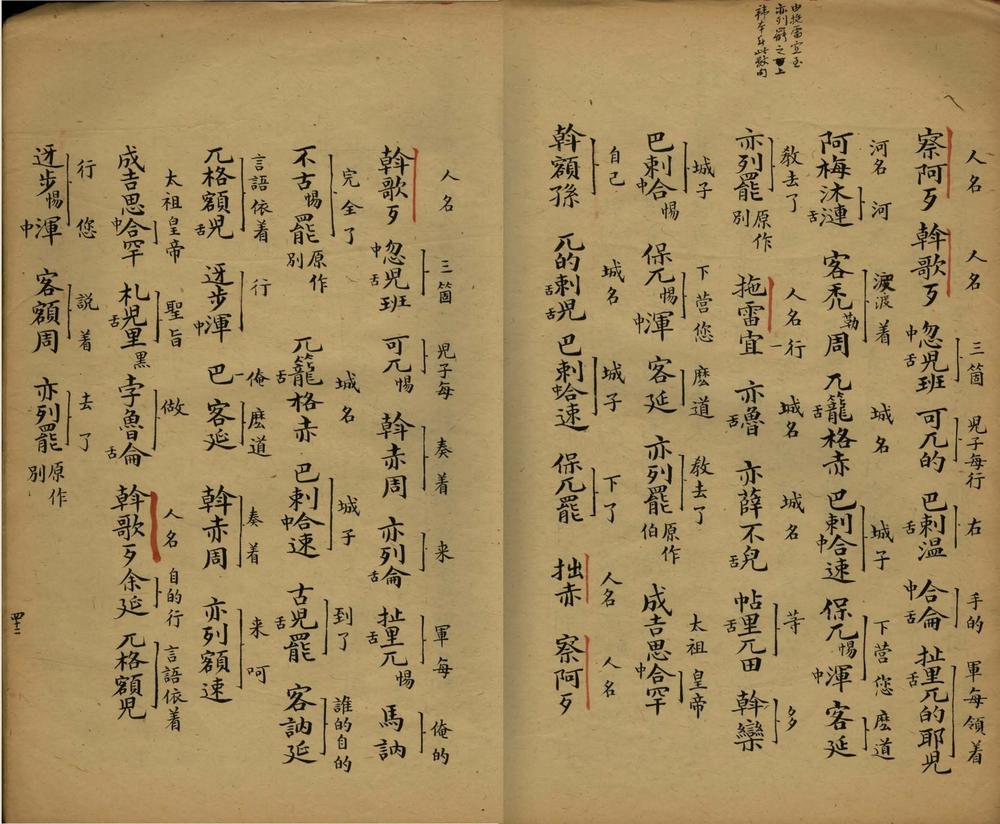 由拖雷宜至
亦列罷之上
人名 人名 三箇 兒子每行 右 手的 軍每領着
察阿歹 斡歌歹 中忽舌兒班 可兀的 巴舌剌溫 中合舌侖 扯舌里兀的耶兒
河名 河 滚滚着 城名 城子 下营您 麽道
阿梅沐舌漣 客禿勒周 兀舌籠格赤 巴舌剌中合速 保兀惕中渾 客延
教去了 人名行 城名 城名 等 多
亦列罷原作別 拖雷宜 亦舌魯 亦薛不舌兒 帖里兀田 斡欒
城子 下营您 麽道 教去了 太祖皇帝
巴剌中合惕 保兀惕中渾 客延 亦列罷原作伯 成吉思中合罕
自己 城名 城子 下了 人名 人名
斡額孫 兀的舌剌舌兒 巴剌中哈速 保兀罷 拙赤 察阿歹
人名 三箇 兒子每 奏着 来 軍每 俺的
斡歌歹 中忽舌兒班 可兀惕 斡赤周 亦列舌侖 扯舌里兀惕 馬訥
完全了 城名 城子 到了 誰的自的
不古惕罷原作別 兀舌籠格赤 巴剌中哈速 古舌兒罷 客訥延
言語依着 行 俺 麽道 奏着 来呵
兀格額舌兒 迓步中渾 巴 客延 斡赤周 亦列額速
太祖皇帝 聖旨 做 人名 自的行 言語依着
成吉思中合罕 札舌兒里黑 孛舌魯侖 斡歌歹余延 兀格額兒
行 您 説着 去了
迓步惕中渾 客額周 亦列罷原作別